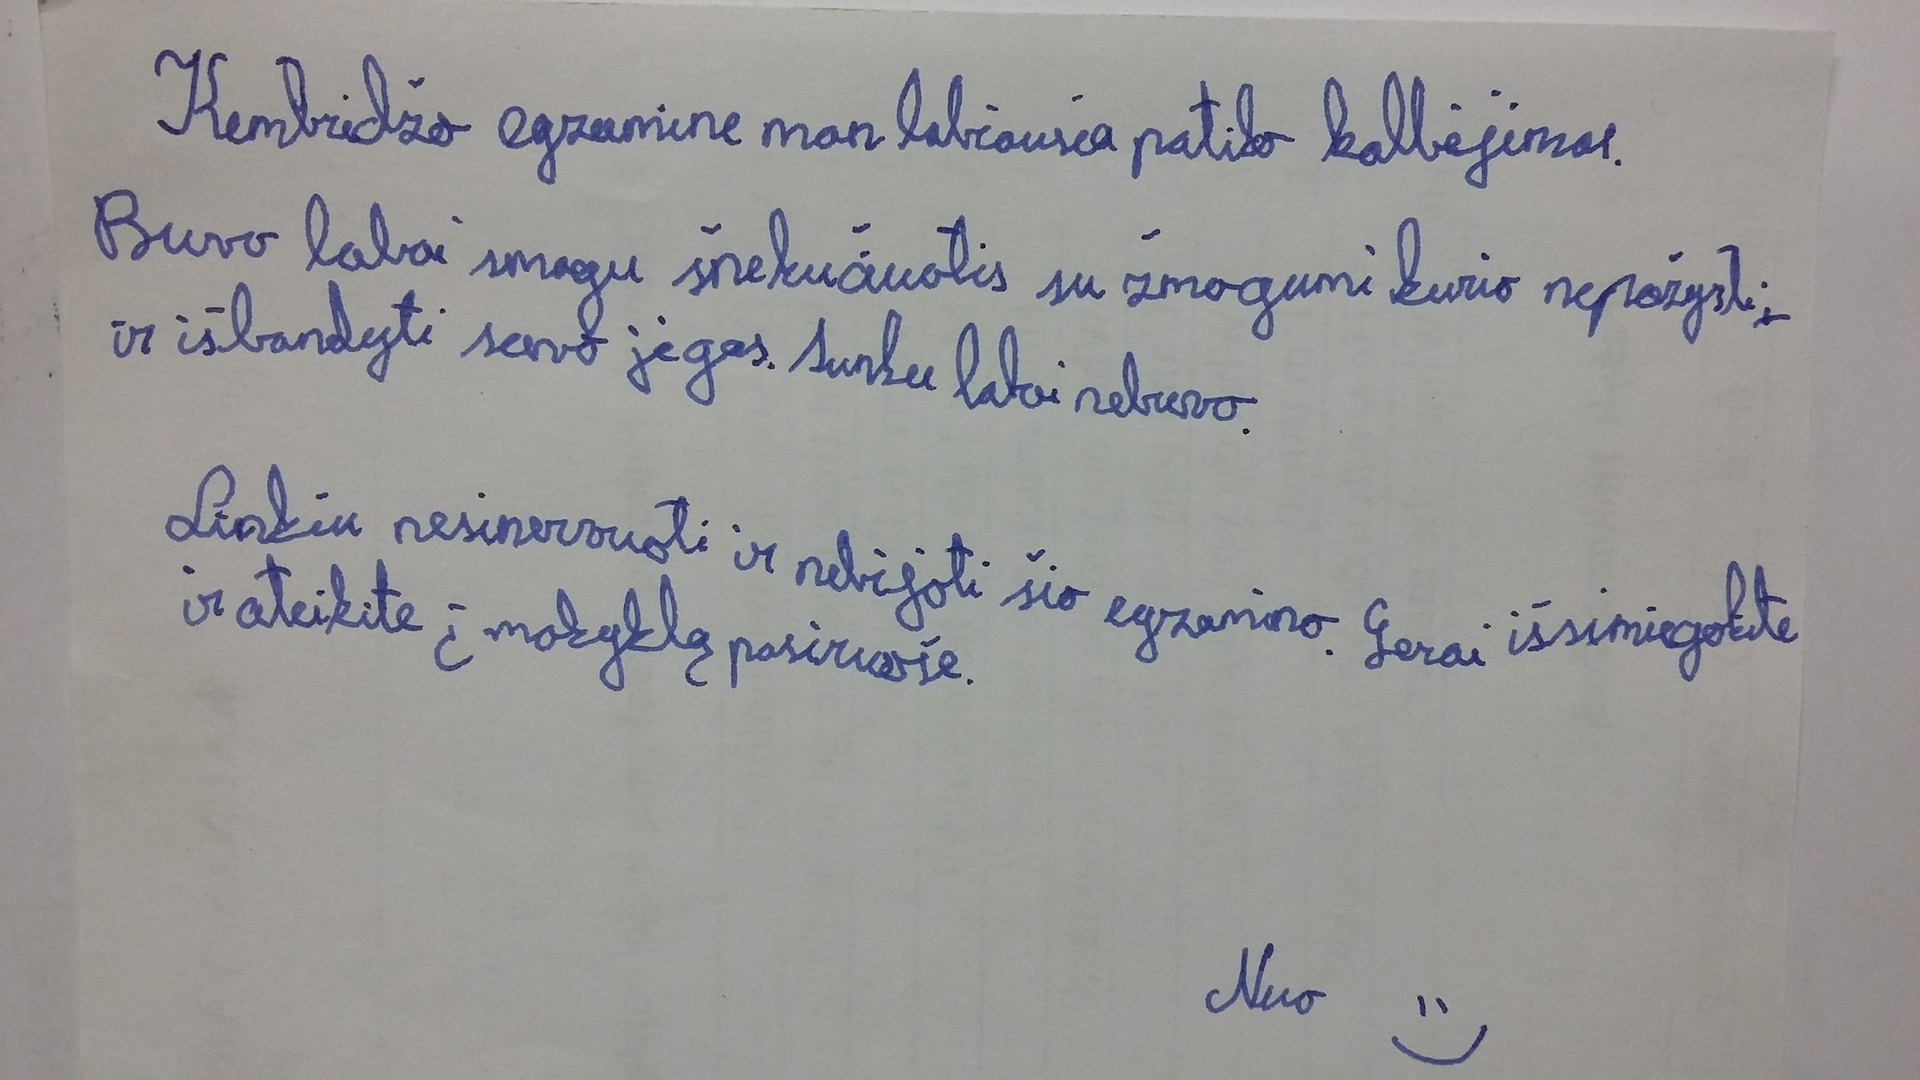 Kembridžo egzamine man labiausia patiko kalbėjimas.
Buvo labai smagu šnekučiuotis su žmogumi kurio nepažysti,
ir išbandyti savo jėgas. Sunku labai nebuvo.
Linkiu nesinervuoti ir nebijoti šio egzamino. Gerai išsimiegokite
ir ateikite į mokyklą pasiruošę.
Nuo